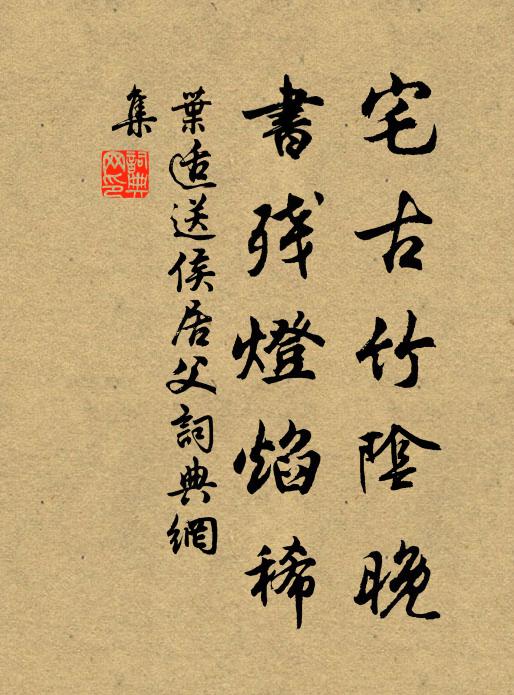 宅古竹陰晚
書殘燈焰稀
葉适送侯居父詞典網
集
詞典網印